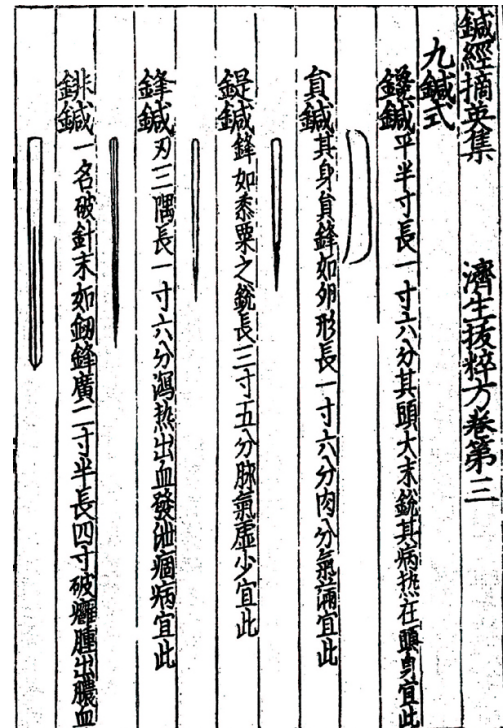 鍼經摘英集　濟生拔粹方卷第三
九鍼式
鑱鍼平半寸長一寸六分其頭大末銳其病热在頭身宜此
員鍼其身員鋒如卵形長一寸六分肉分氣滿宜此
鍉鍼鋒如黍粟之銳長三寸五分脉氣虛少宜此
鋒鍼刃三隅長一寸六分瀉热出血發泄痼病宜此
鈹鍼一名破針末如劔鋒廣二寸半長四寸破癰腫出膿血